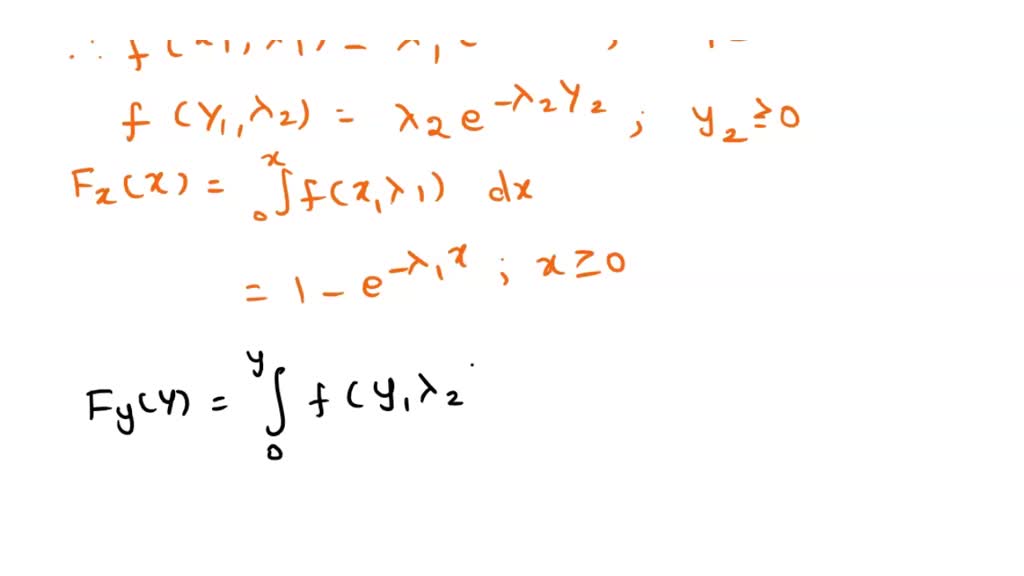 f (y₁, λ₂) = λ₂ e^{-λ₂ y₂} ; y₂ ≥ 0
Fₓ(x) = ∫₀ˣ f(x, λ₁) dx
= 1 - e^{-λ₁ x} ; x ≥ 0
F_y(y) = ∫₀^y f(y, λ₂